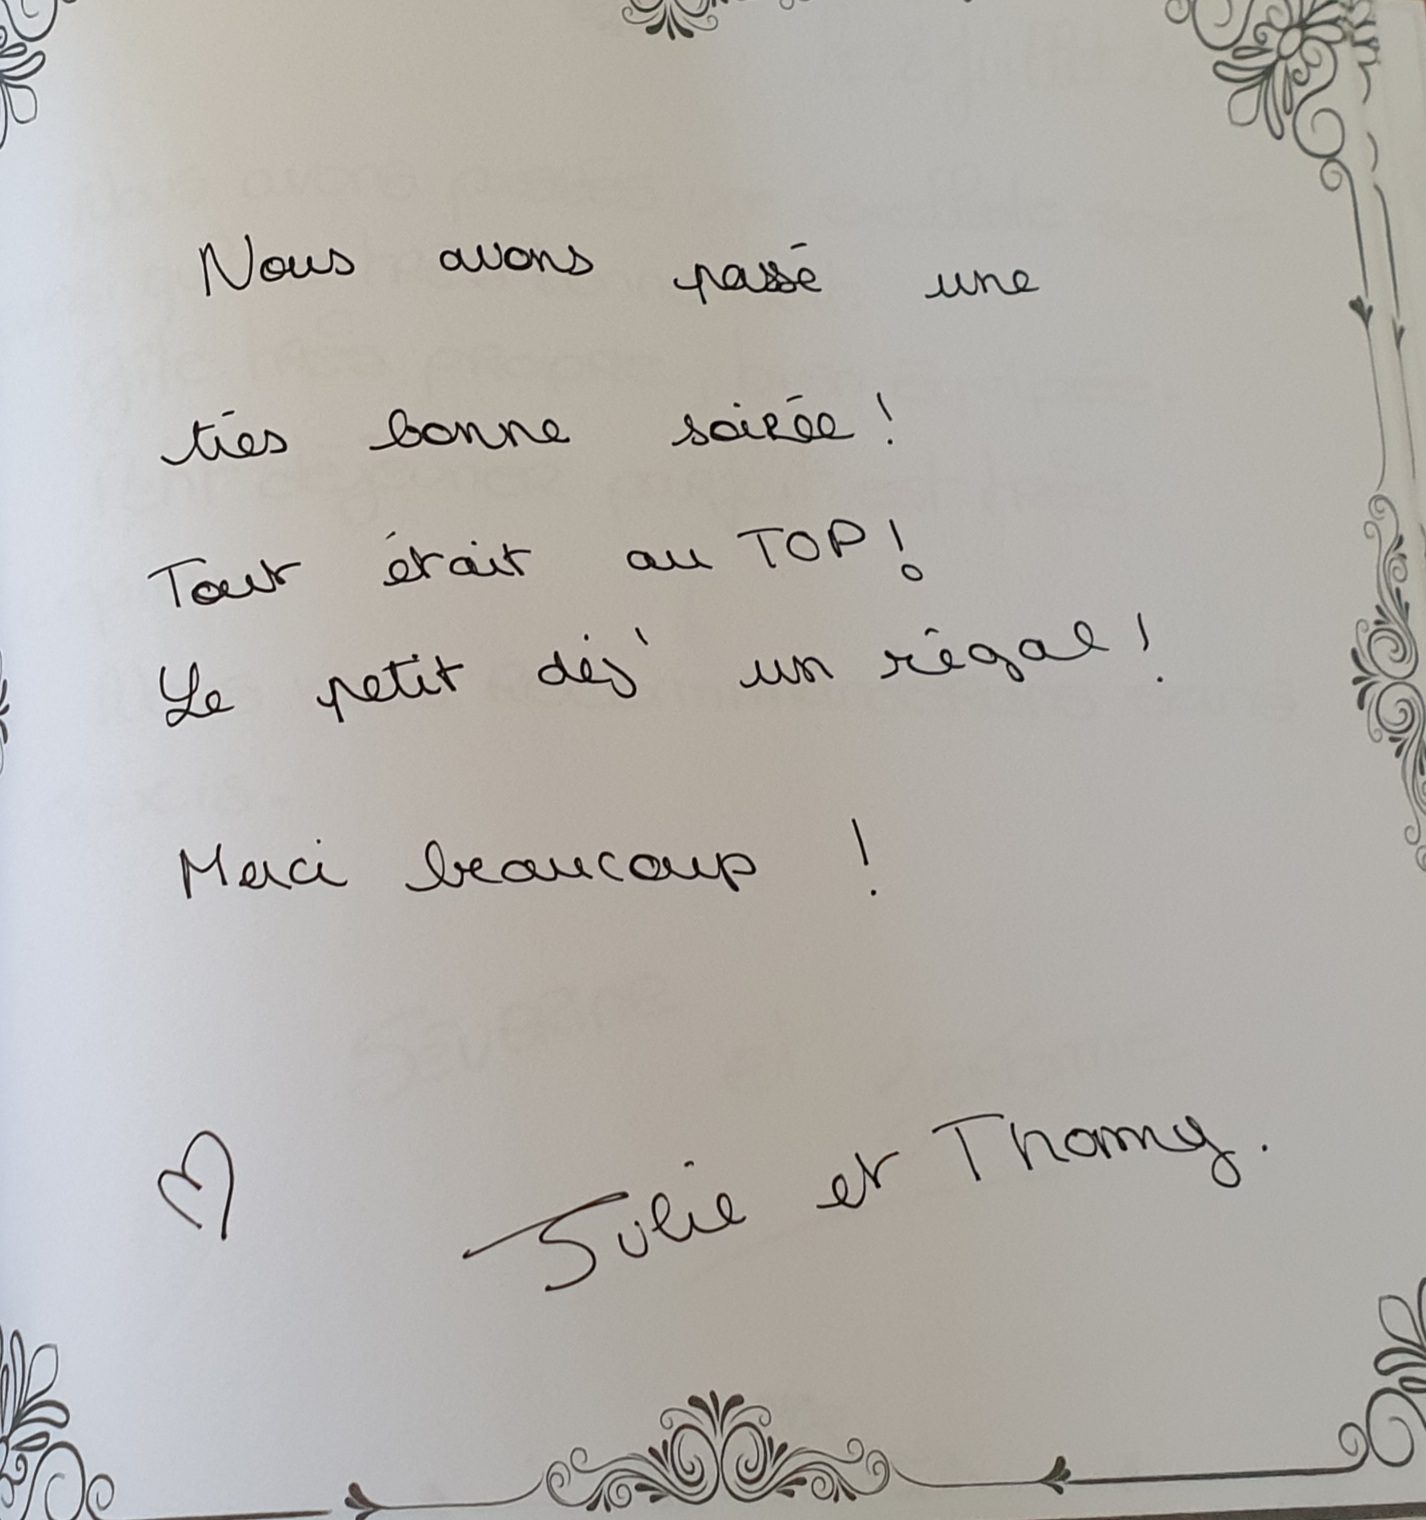 Nous avons passé une
très bonne soirée !
Tout était au TOP !
Le petit déj' un régal !
Merci beaucoup !
Julie et Thomy.